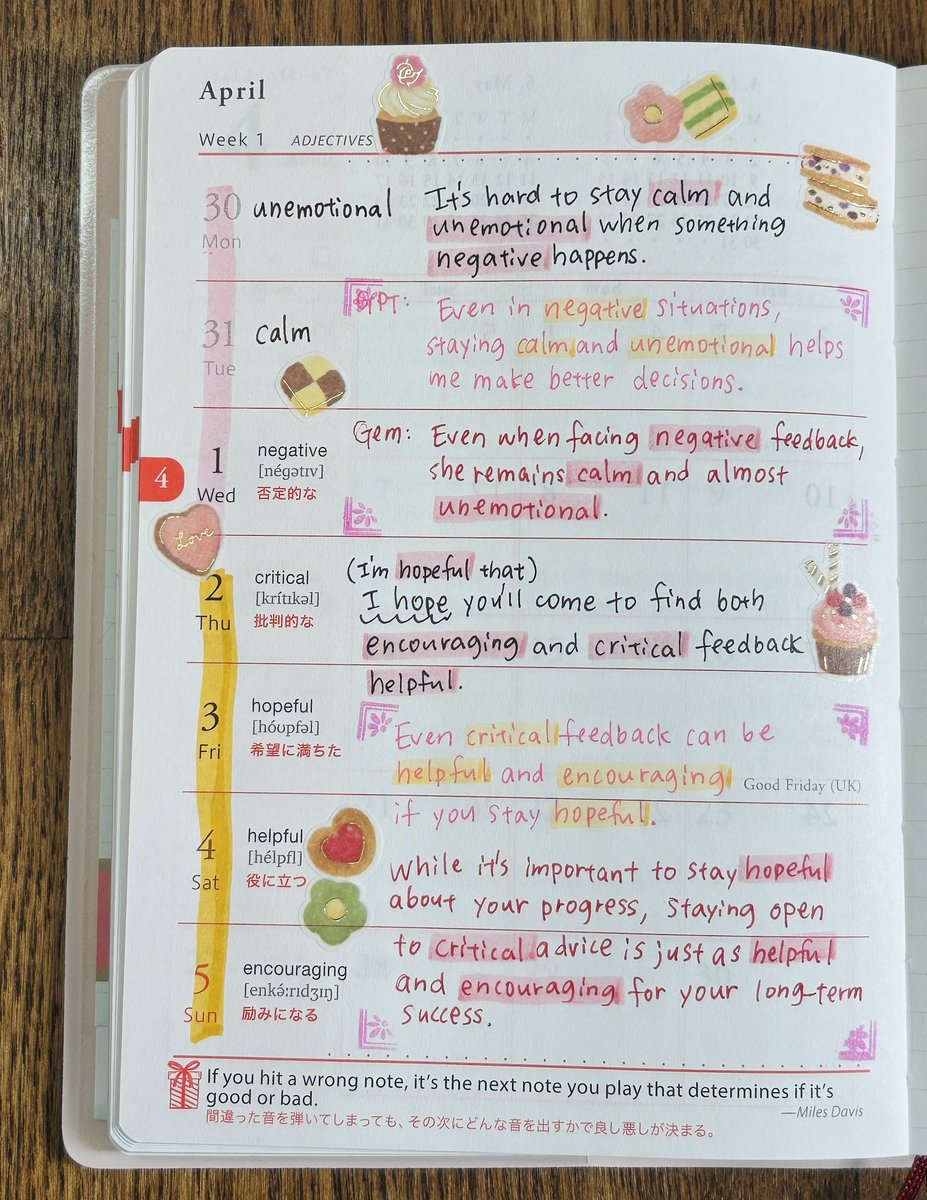 April
Week 1 ADJECTIVES
30 unemotional
Mon
It's hard to stay calm and
unemotional when something
negative happens.
31 calm
Tue
GPT: Even in negative situations,
staying calm and unemotional helps
me make better decisions.
4
1 negative
Wed [négətɪv]
否定的な
Gem: Even when facing negative feedback,
she remains calm and almost
unemotional.
Love
2 critical
Thu [krítɪkəl]
批判的な
(I'm hopeful that)
I hope you'll come to find both
encouraging and critical feedback
helpful.
3 hopeful
Fri [hóʊpfəl]
希望に満ちた
Even critical feedback can be
helpful and encouraging
Good Friday (UK)
if you stay hopeful.
4 helpful
Sat [hélpfl]
役に立つ
While it's important to stay hopeful
about your progress, staying open
to critical advice is just as helpful
and encouraging for your long-term
success.
5 encouraging
Sun [enkə́ːrɪdʒɪŋ]
励みになる
If you hit a wrong note, it's the next note you play that determines if it's
good or bad.
—Miles Davis
間違った音を弾いてしまっても、その次にどんな音を出すかで良し悪しが決まる。